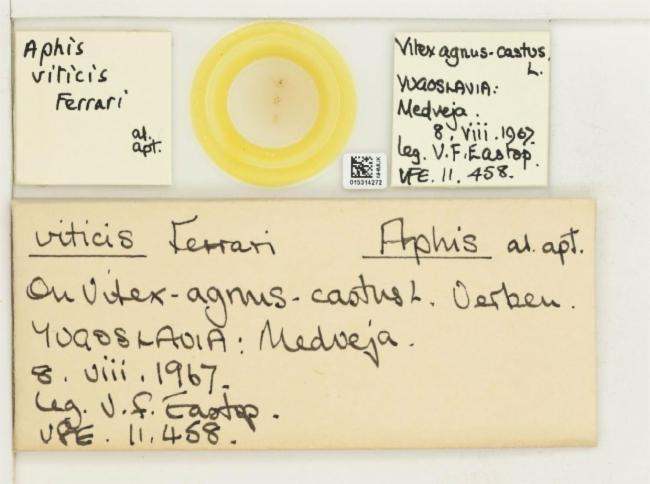 Aphis
viticis
Ferrari
al.
apt.
Vitex agnus-castus,
L.
YUGOSLAVIA:
Medveja.
8. viii. 1967.
leg. V.F. Eastop.
VFE. 11. 458.
NHMUK
015314272
viticis Ferrari Aphis al. apt.
On Vitex-agnus-castus L. Verben.
YUGOSLAVIA: Medveja.
8. viii. 1967.
leg. V. F. Eastop.
VFE. 11. 458.